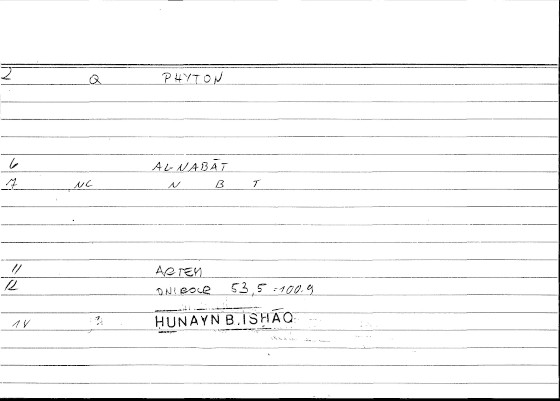 2 Q PHYTON
6 AL-NABĀT
7 NC N B T
11 ARTEM
12 53,5 = 100.9
14 HUNAYN B. ISHAQ